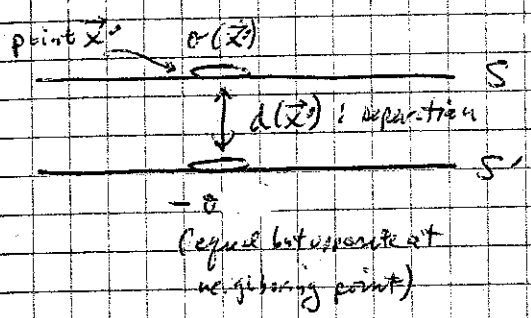 point x⃗' σ(x⃗')
S
d(x⃗') : separation
S'
- σ
(equal but opposite at
neighboring point)